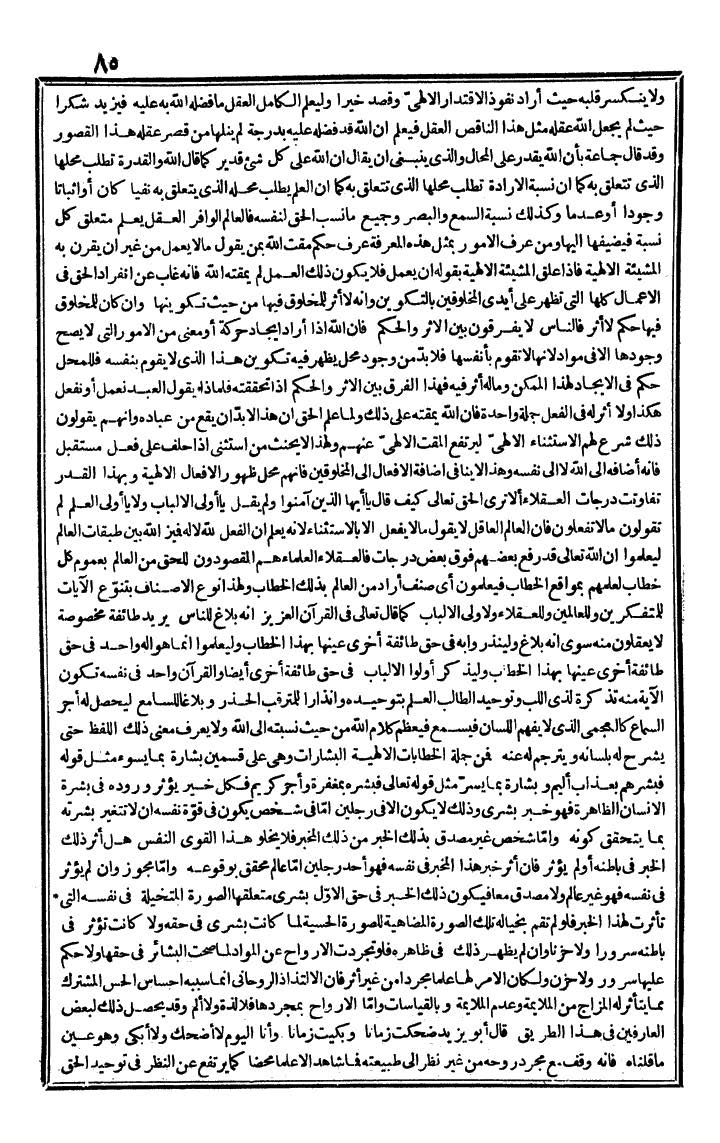 ٨٥
ولا ينكسر قلبه حيث أراد نفوذ الاقتدار الالهىّ وقصد خيرا وليعلم الكامل العقل ما فضله الله به عليه فيزيد شكرا
حيث لم يجعل الله عقله مثل هذا الناقص العقل فيعلم ان الله قد فضله عليه بدرجة لم ينلها من قصر عقله هذا القصور
وقد قال جماعة بأن الله يقدر على المحال والذى ينبغى ان يقال ان الله على كل شئ قدير كما قال الله والقدرة تطلب محلها
الذى تتعلق به كما ان نسبة الارادة تطلب محلها الذى تتعلق به كما ان العلم يطلب محله الذى يتعلق به نفيا كان أو اثباتا
وجودا أو عدما وكذلك نسبة السمع والبصر وجميع ما نسب الحق لنفسه فالعالم الوافر العقل يعلم متعلق كل
نسبة فيضيفها اليها ومن عرف الامور بمثل هذه المعرفة عرف حكم مقت الله بمن يقول ما لا يعمل من غير ان يقرن به
المشيئة الالهية فاذا علق المشيئة الالهية بقوله ان يعمل فلا يكون ذلك العمل لم يمقته الله فانه غاب عن انفراد الحق فى
الاعمال كلها التى تظهر على أيدى المخلوقين بالتكوين وانه لا أثر للمخلوق فيها من حيث تكوينها وان كان للمخلوق
فيها حكم لا أثر فالناس لا يفرقون بين الاثر والحكم فان الله اذا أراد ايجاد حركة أو معنى من الامور التى لا يصح
وجودها الا فى مواد لانها لا تقوم بأنفسها فلا بدّ من وجود محل يظهر فيه تكوين هذا الذى لا يقوم بنفسه فللمحل
حكم فى الايجاد لهذا الممكن وما له أثر فيه فهذا الفرق بين الاثر والحكم اذا تحققته فلماذا يقول العبد نعمل أو نفعل
هكذا ولا أثر له فى الفعل جملة واحدة فان الله يمقته على ذلك ولما علم الحق ان هذا لا بدّ ان يقع من عباده وانهم يقولون
ذلك شرع لهم الاستثناء الالهىّ ليرتفع المقت الالهىّ عنهم ولهذا لا يحنث من استثنى اذا حلف على فعل مستقبل
فانه أضافه الى الله لا الى نفسه وهذا لا ينافى اضافة الافعال الى المخلوقين فانهم محل ظهور الافعال الالهية وبهذا القدر
تفاوتت درجات العقلاء ألا ترى الحق تعالى كيف قال يا أيها الذين آمنوا ولم يقل يا أولى الالباب ولا يا أولى العلم لم
تقولون ما لا تفعلون فان العالم العاقل لا يقول ما لا يفعل الا بالاستثناء لانه يعلم ان الفعل لله لا له فميز الله بين طبقات العالم
ليعلموا ان الله تعالى قد رفع بعضهم فوق بعض درجات فالعقلاء العلماء هم المقصودون للحق من العالم بعموم كل
خطاب لعلمهم بمواقع الخطاب فيعلمون أى صنف أراد من العالم بذلك الخطاب ولهذا نوّع الاصناف بتنوّع الآيات
للمتفكرين وللعالمين وللعقلاء ولاولى الالباب كما قال تعالى فى القرآن العزيز انه بلاغ للناس يريد طائفة مخصوصة
لا يعقلون منه سوى انه بلاغ ولينذروا به فى حق طائفة أخرى عينها بهذا الخطاب وليعلموا انما هو اله واحد فى حق
طائفة أخرى عينها بهذا الخطاب وليذكر أولوا الالباب فى حق طائفة أخرى أيضا والقرآن واحد فى نفسه تكون
الآية منه تذكرة لذى اللب وتوحيد الطالب العلم بتوحيده وانذارا للمترقب الحذر وبلاغا للسامع ليحصل له أجر
السماع كالعجمى الذى لا يفهم اللسان فيسمع فيعظم كلام الله من حيث نسبته الى الله ولا يعرف معنى ذلك اللفظ حتى
يشرح له بلسانه ويترجم له عنه فمن جملة الخطابات الالهية البشارات وهى على قسمين بشارة بما يسوء مثل قوله
فبشرهم بعذاب أليم وبشارة بما يسرّ مثل قوله تعالى فبشره بمغفرة وأجر كريم فكل خبر يؤثر وروده فى بشرة
الانسان الظاهرة فهو خبر بشرى وذلك لا يكون الا فى رجلين امّا فى شخص يكون فى قوّة نفسه ان لا تتغير بشرته
بما يتحقق كونه وامّا شخص غير مصدق بذلك الخبر من ذلك المخبر فلا يخلو هذا القوى النفس هل أثر ذلك
الخبر فى باطنه أو لم يؤثر فان أثر خبر هذا المخبر فى نفسه فهو أحد رجلين امّا عالم محقق بوقوعه وامّا مجوز وان لم يؤثر
فى نفسه فهو غير عالم ولا مصدق معا فيكون ذلك الخبر فى حق الاوّل بشرى متعلقها الصورة المتخيلة فى نفسه التى
تأثرت لهذا الخبر فلو لم تقم بخياله تلك الصورة المضاهية للصورة الحسية لما كانت بشرى فى حقه ولا كانت تؤثر فى
باطنه سرورا ولا حزنا وان لم يظهر ذلك فى ظاهره فلو تجردت الارواح عن المواد لما صحت البشائر فى حقها ولا حكم
عليها سرور ولا حزن ولكان الامر لها علما مجردا من غير أثر فان الالتذاذ الروحانى انما سببه احساس الحس المشترك
مما يتأثر له المزاج من الملايمة وعدم الملايمة وبالقياسات وامّا الارواح بمجردها فلا لذة ولا ألم وقد يحصل ذلك لبعض
العارفين فى هذا الطريق قال أبو يزيد ضحكت زمانا وبكيت زمانا وأنا اليوم لا أضحك ولا أبكى وهو عين
ما قلناه فانه وقف مع مجرد روحه من غير نظر الى طبيعته فما شاهد الا علما محضا كما يرتفع عن النظر فى توحيد الحق